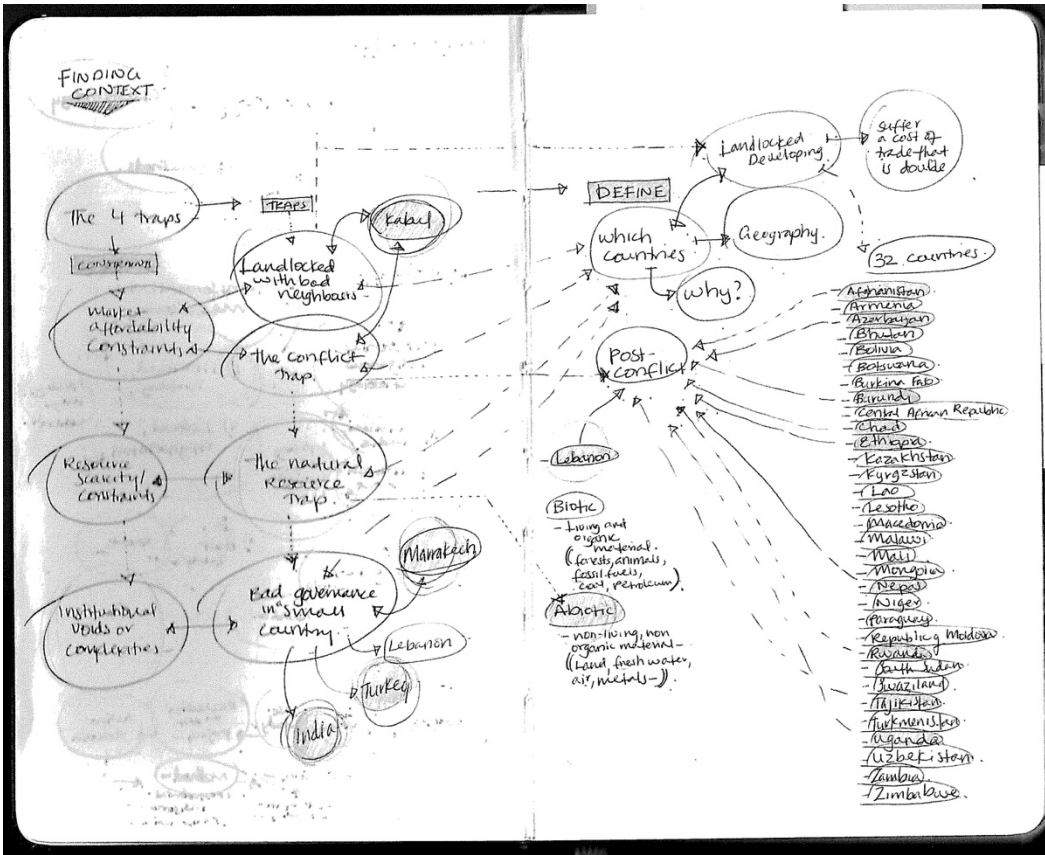 FINDING
CONTEXT
The 4 traps
TRAPS
Kabul
Landlocked
with bad
neighbours
Market
affordability
constraints
the conflict
trap.
Resource
Scarcity/
constraints
The natural
Resource
Trap.
Marrakech
Bad governance
in small
country.
Institutional
voids or
complexities
Lebanon
Turkey
India
DEFINE
Landlocked
Developing
suffer
a cost of
trade that
is double
which
countries
Geography.
why?
32 countries.
Post-
conflict
- Lebanon
Biotic
- Living and
organic
material.
(forests, animals,
fossil fuels,
coal, petroleum).
Abiotic
- non-living, non
organic material-
(Land, fresh water,
air, metals-).
- Afghanistan
- Armenia
- Azerbayan
- Bhutan
- Bolivia
- Botswana
- Burkina Faso
- Burundi
- Central African Republic
- Chad
- Ethiopia
- Kazakhstan
- Kyrgzstan
- Lao
- Lesotho
- Macedonia
- Malawi
- Mali
- Mongolia
- Nepal
- Niger
- Paraguay
- Republic of Moldova
- Rwanda
- South Sudan
- Swaziland
- Tajikistan
- Turkmenistan
- Uganda
- Uzbekistan
- Zambia.
- Zimbabwe.